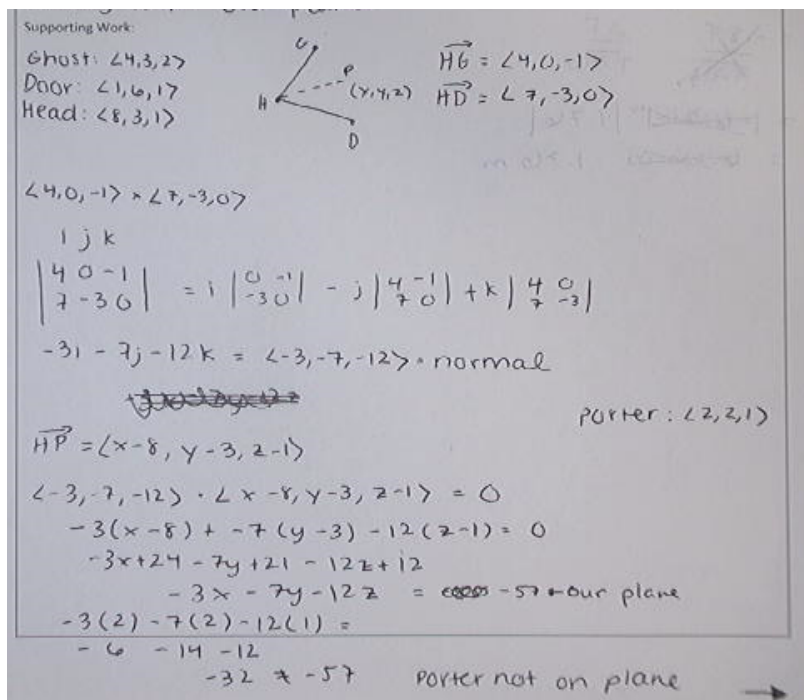 Supporting Work:
Ghost: <4,3,2>
Door: <1,6,1>
Head: <8,3,1>
G
P
(x,y,z)
H
D
HG = <4,0,-1>
HD = <7,-3,0>
<4,0,-1> × <7,-3,0>
i j k
|4 0 -1
7 -3 0| = i |0 -1
-3 0| - j |4 -1
7 0| + k |4 0
7 -3|
-3i - 7j - 12k = <-3,-7,-12> = normal
Porter: <2,2,1>
HP = <x-8, y-3, z-1>
<-3,-7,-12> · <x-8, y-3, z-1> = 0
-3(x-8) + -7(y-3) - 12(z-1) = 0
-3x+24 - 7y+21 - 12z+12
-3x - 7y - 12z = -57 ← our plane
-3(2) - 7(2) - 12(1) =
-6 -14 -12
-32 ≠ -57 Porter not on plane